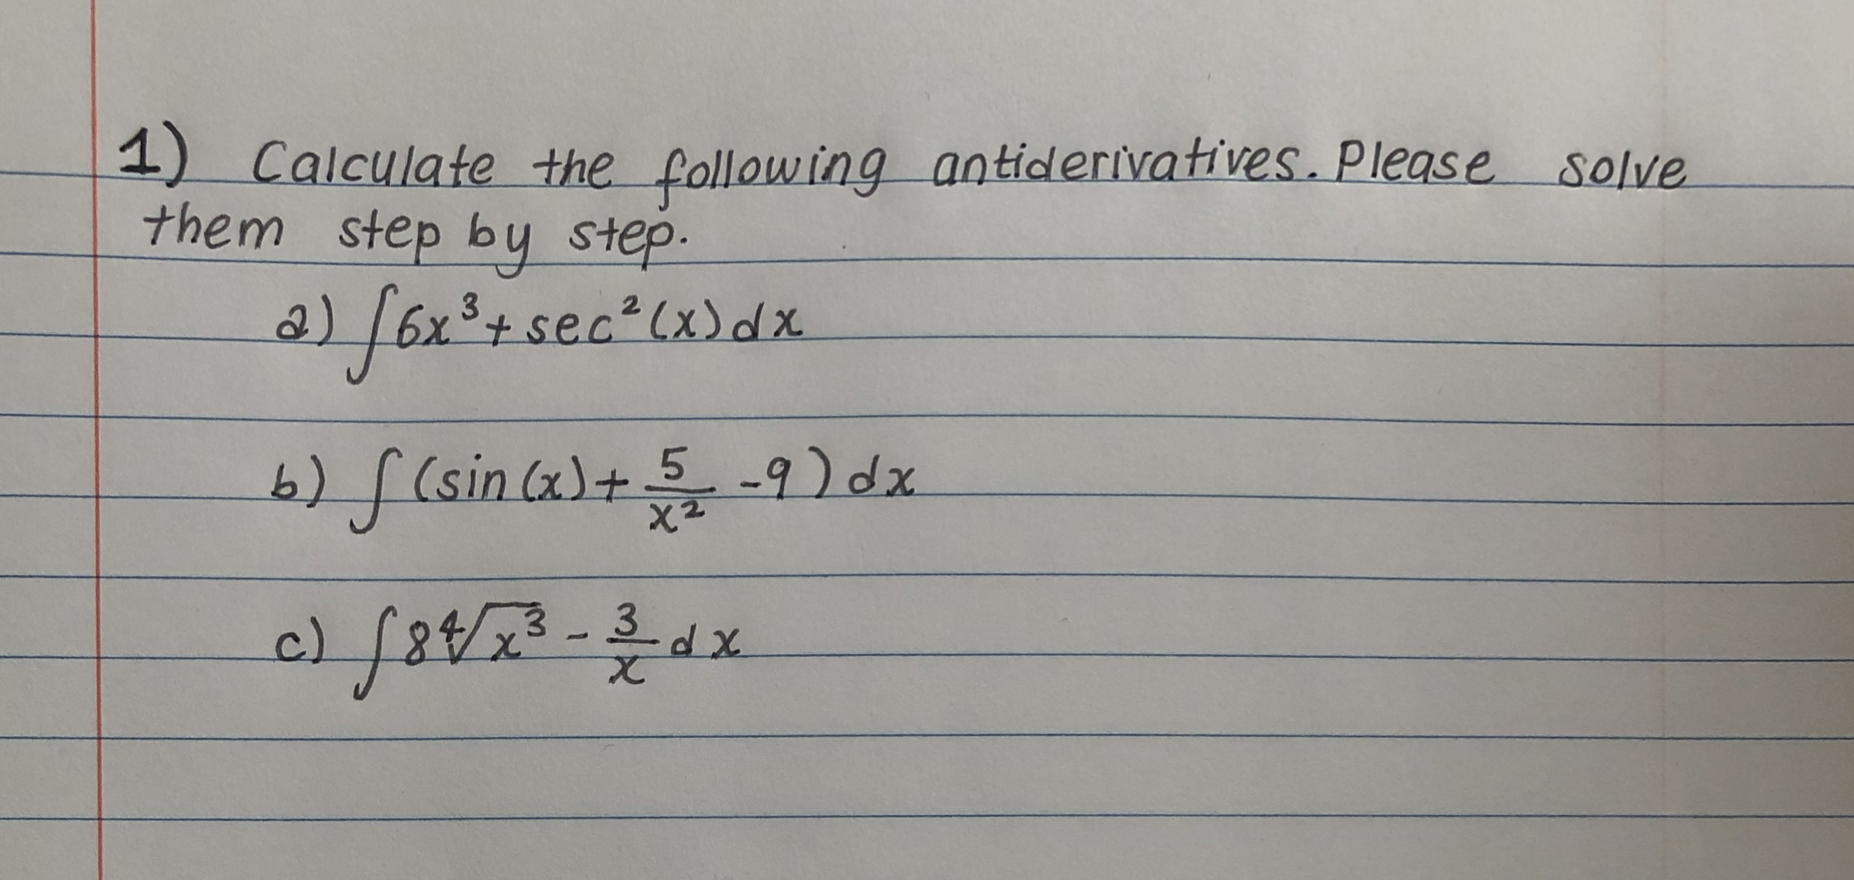 1) Calculate the following antiderivatives. Please solve
them step by step.
a) ∫6x³+ sec²(x)dx
b) ∫(sin(x)+ 5/x² -9)dx
c) ∫8∜x³ - 3/x dx